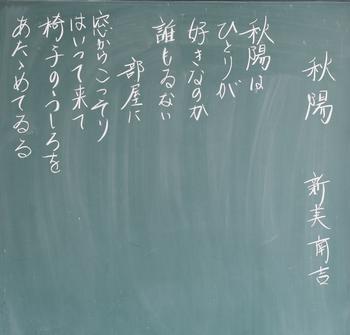 秋陽
新美南吉
秋陽は
ひとりが
好きなのか
誰もゐない
部屋に
窓からこっそり
はいって来て
椅子のうしろを
あたゝめてゐる